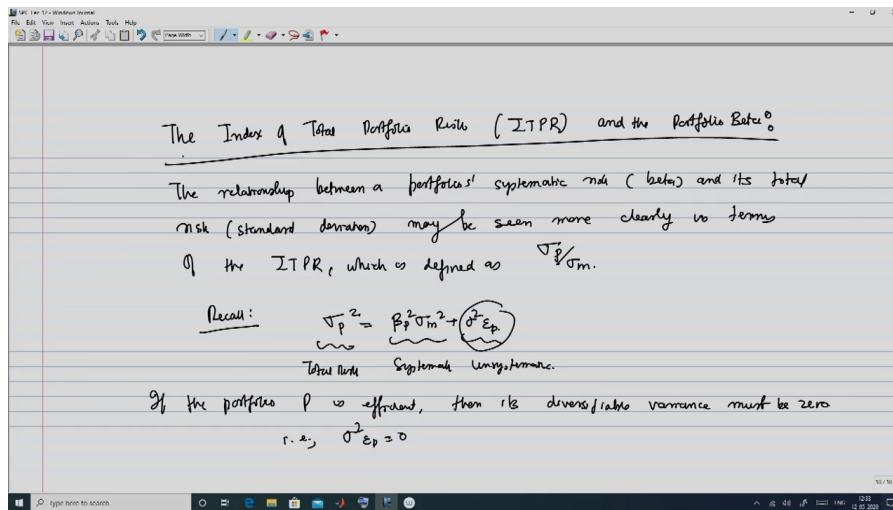 SPC Lec 12 - Windows Journal
File Edit View Insert Actions Tools Help
Page Width
The Index of Total Portfolio Risk (ITPR) and the Portfolio Beta:
The relationship between a portfolios' systematic risk (beta) and its total
risk (standard deviation) may be seen more clearly in terms
of the ITPR, which is defined as σp/σm.
Recall: σp² = βp²σm² + σ²εp.
Total Risk Systematic Unsystematic.
If the portfolio P is efficient, then its diversifiable variance must be zero
i.e., σ²εp = 0
10 / 10
Type here to search
ENG 12:33
12-05-2020